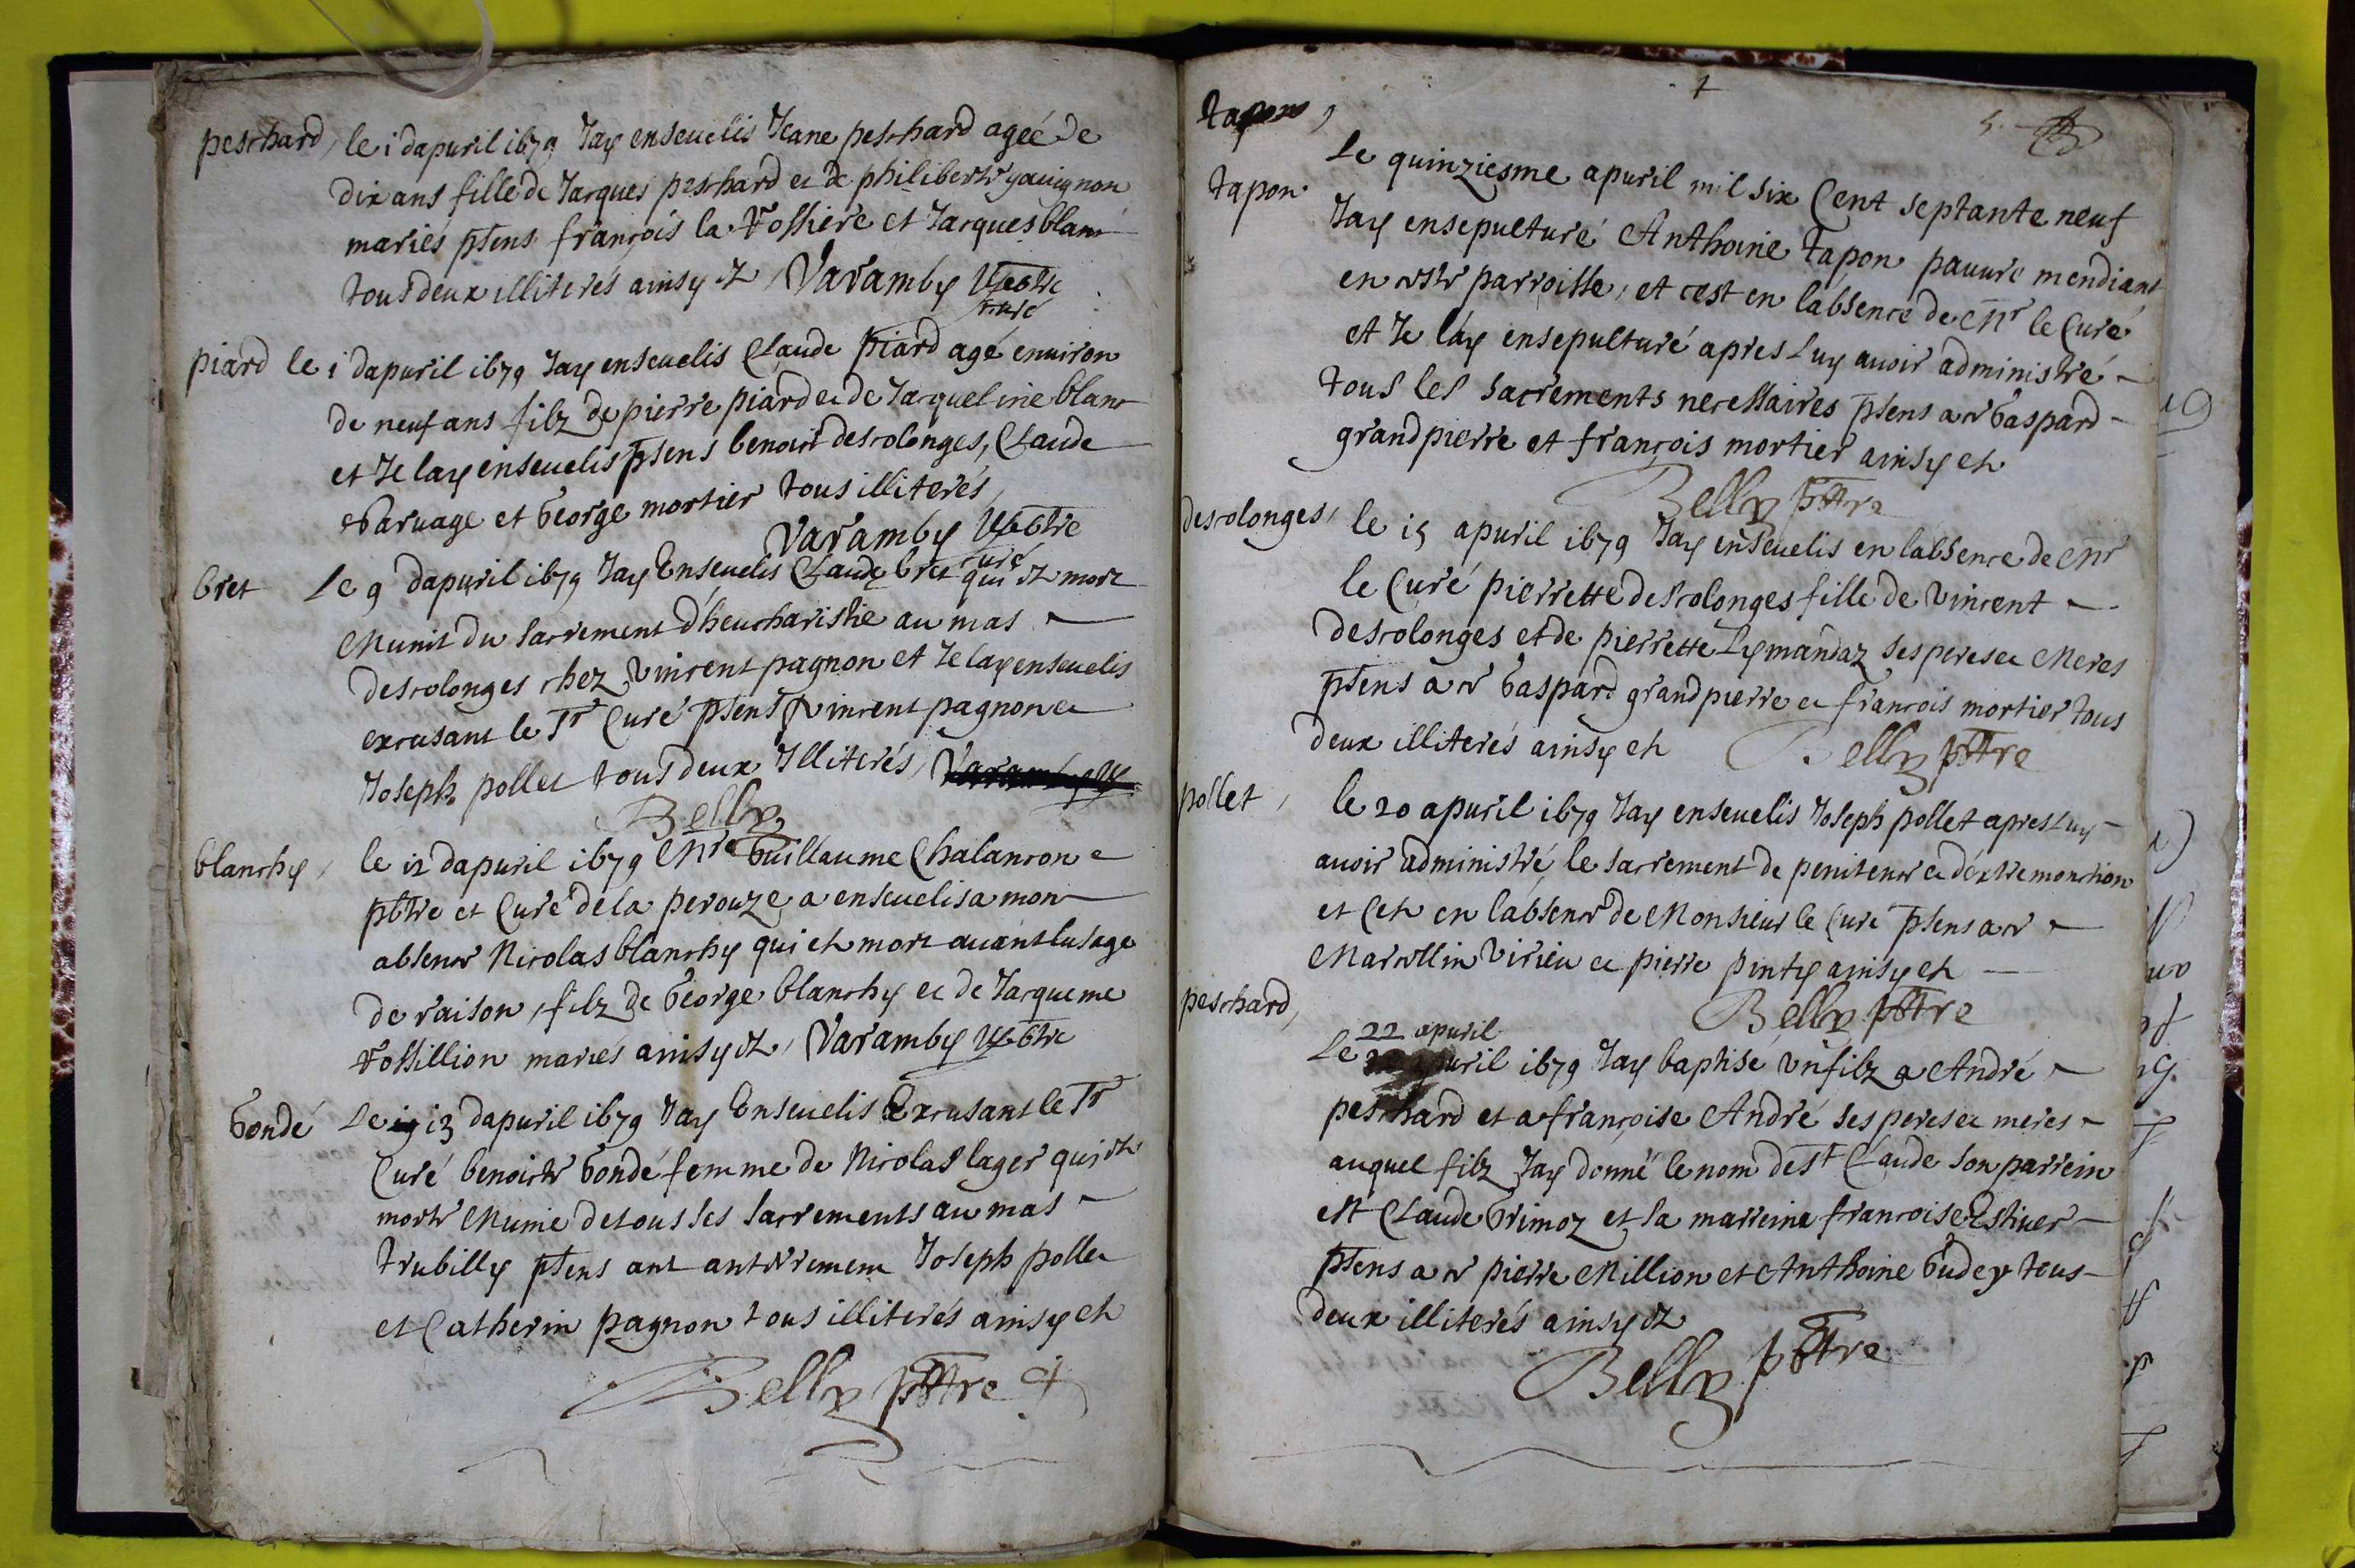 peschard, le 1 dapuril 1679 Jay enseuelis Jeane peschard ageé de
dix ans fille de Jacques peschard et de philiberte gauignon
mariés pñts françois la Vossiere et Jacques blanc
tous deux illiterés ainsy est, Varamby pbtre
curé
piard le 1 dapuril 1679 Jay enseuelis Claude piard agé enuiron
de neuf ans filz de pierre piard et de Jacqueline blanc
et Je lay enseuelis pñts benoist descolonges, Claude
garuage et George mortier tous illiterés,
Varamby pbtre
curé
bret Le 9 dapuril 1679 Jay Enseuelis Claude bret qui est mort
Munit du sacrement dheucharistie au mas
descolonges chez vincent pagnon et Je lay enseuelis
excusant le Sr Curé pñts vincent pagnon et
Joseph pollet tous deux Illiterés,
Belly
blanchy, le 12 dapuril 1679 Mre Guillaume Chalancon
pbtre et Curé de la perouze a enseuelis a mon
absence Nicolas blanchy qui est mort auant lusage
de raison, filz de George blanchy et de Jacqueme
Vossillion mariés ainsy est, Varamby pbtre
Gondé Le 13 dapuril 1679 Jay Enseuelis Excusant le Sr
Curé benoiste Gondé femme de Nicolas lager qui est
morte Munie de tous ses sacrements au mas
trubilly pñts ant anterrement Joseph pollet
et Catherin pagnon tous illiterés ainsy est
Belly pbtre
5.
tapon,
tapon Le quinziesme apuril mil six Cent septante neuf
Jay ensepulturé Anthoine tapon pauure mendiant
en cste parroisse, et cest en labsence de Mr le Curé
et Je lay ensepulturé apres Luy auoir administré
tous les sacrements necessaires pñts a ce Gaspard
grandpierre et françois mortier ainsy est
Belly pbtre
descolonges, le 15 apuril 1679 Jay enseuelis en labsence de Mr
le Curé pierrette descolonges fille de vincent
descolonges et de pierrette Lymandaz ses peres et Meres
pñts a ce Gaspard grandpierre et francois mortier tous
deux illiterés ainsy est Belly pbtre
pollet, le 20 apuril 1679 Jay enseuelis Joseph pollet apres Luy
auoir administré le sacrement de penitence et dextremonction
et Cest en labsence de Monsieur le Curé pñts a ce
Marcellin Virieu et pierre pinty ainsy est
Belly pbtre
peschard,
22 apuril
Le puril 1679 Jay baptisé vn filz a André
peschard et a françoise André ses peres et meres
auquel filz Jay donné le nom de St Claude son parrein
est Claude Primoz et sa marreine francoise Estiuer
pñts a ce pierre Million et Anthoine Gudey tous
deux illiterés ainsy est
Belly pbtre